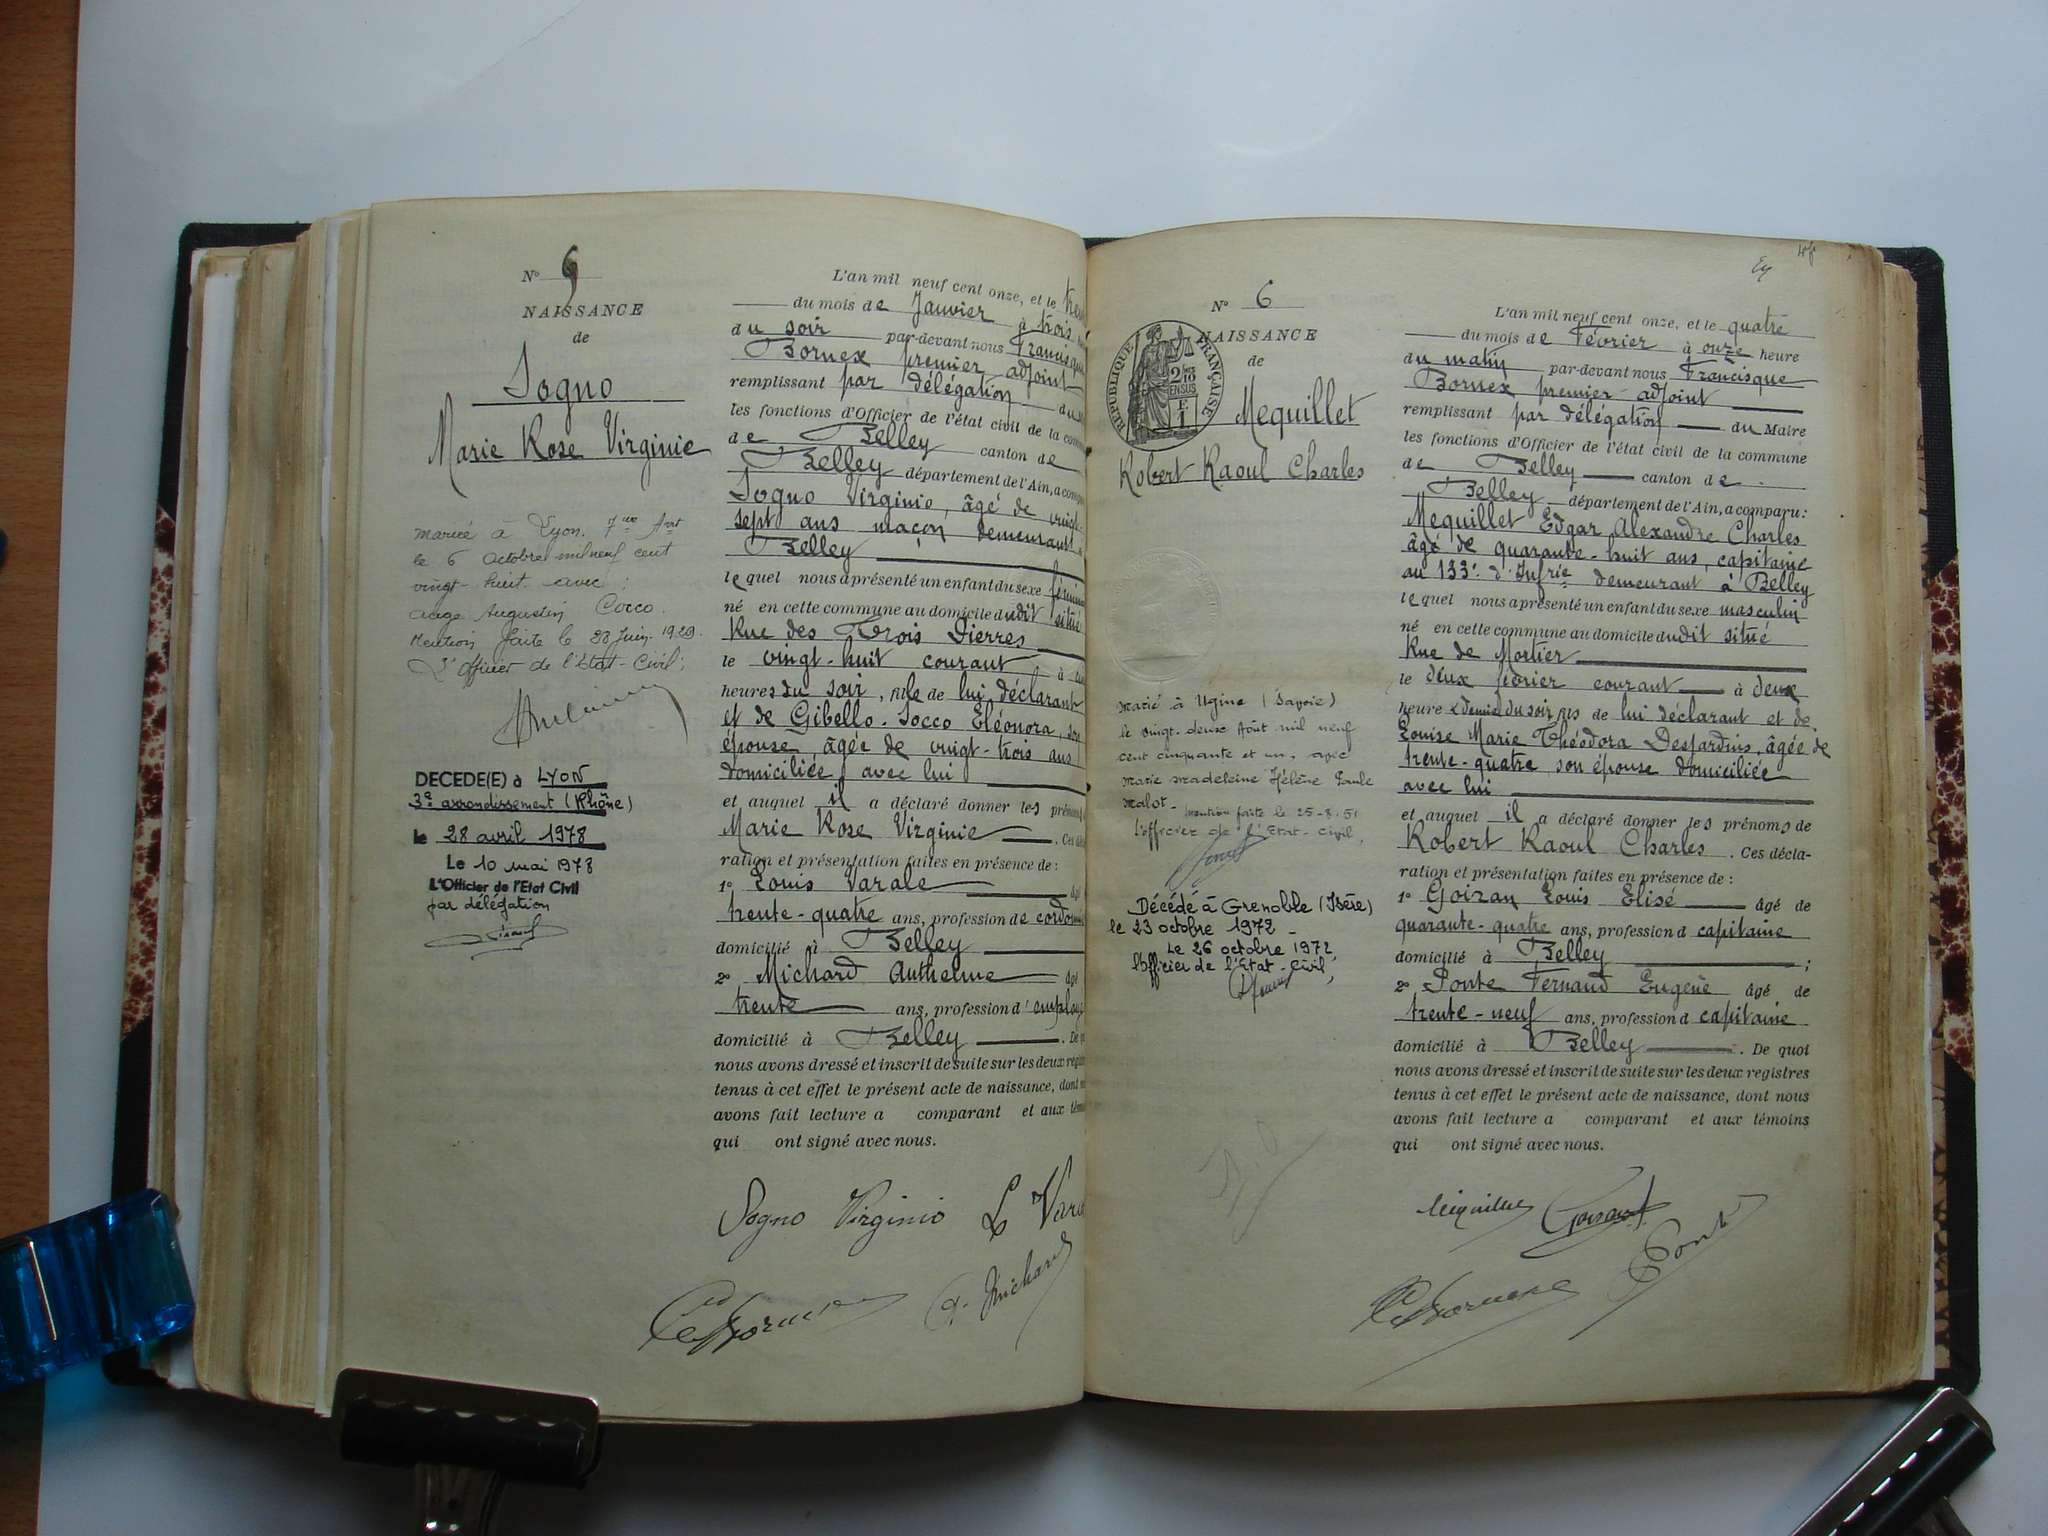 N°
NAISSANCE
de
Sogno
Marie Rose Virginie
marié à Lyon. 7me Arrt
le 6 Octobre mil neuf cent
vingt-huit avec :
Augustin Cocco.
Mention faite le 28 Juin 1929.
L'officier de l'Etat-Civil;
DECEDE(E) à LYON
3e arrondissement (Rhône)
le 28 avril 1978
Le 10 mai 1978
L'Officier de l'Etat Civil
par délégation
L'an mil neuf cent onze, et le
du mois de Janvier à trois
du soir par-devant nous Francisque
Bornex premier adjoint
remplissant par délégation du
les fonctions d'Officier de l'état civil de la
de Belley canton de
Belley département de l'Ain, a
Sogno Virginio, âgé de vingt-
sept ans maçon demeurant
Belley
lequel nous a présenté un enfant du sexe
né en cette commune au domicile dudit situé
Rue des Trois Pierres
le vingt-huit courant à
heures du soir, fille de lui déclarant
et de Gibello-Socco Eléonora, son
épouse, âgée de vingt-trois ans
domiciliée avec lui
et auquel il a déclaré donner les prénoms
Marie Rose Virginie . Ces
ration et présentation faites en présence de :
1° Louis Varale âgé
trente-quatre ans, profession de
domicilié à Belley
2° Michard Anthelme âgé
trente ans, profession d'
domicilié à Belley . De
nous avons dressé et inscrit de suite sur les deux
tenus à cet effet le présent acte de naissance, dont
avons fait lecture a comparant et aux
qui ont signé avec nous.
Sogno Virginio L
N° 6
NAISSANCE
de
RÉPUBLIQUE FRANÇAISE
Mequillet
Robert Raoul Charles
Marié à Ugine (Savoie)
le vingt-deux Août mil neuf
cent cinquante et un, avec
Marie Madeleine Hélène Paule
Malot. Mention faite le 25-8-51
L'officier de l'Etat-Civil,
Décédé à Grenoble (Isère)
le 23 octobre 1972
Le 26 octobre 1972,
l'Officier de l'Etat-Civil,
L'an mil neuf cent onze, et le quatre
du mois de Février à onze heure
du matin par-devant nous Francisque
Bornex premier adjoint
remplissant par délégation du Maire
les fonctions d'Officier de l'état civil de la commune
de Belley canton de
Belley département de l'Ain, a comparu :
Mequillet Edgar Alexandre Charles
âgé de quarante-huit ans, capitaine
au 133e d'Infrie demeurant à Belley
lequel nous a présenté un enfant du sexe masculin
né en cette commune au domicile dudit situé
Rue de Mortier
le deux février courant à deux
heure & demie du soir fils de lui déclarant et de
Louise Marie Théodora Desjardins, âgée de
trente-quatre, son épouse domiciliée
avec lui
et auquel il a déclaré donner les prénoms de
Robert Raoul Charles . Ces décla-
ration et présentation faites en présence de :
1° Goizan Louis Elisé âgé de
quarante-quatre ans, profession d capitaine
domicilié à Belley ;
2° Ponte Fernand Eugène âgé de
trente-neuf ans, profession d capitaine
domicilié à Belley . De quoi
nous avons dressé et inscrit de suite sur les deux registres
tenus à cet effet le présent acte de naissance, dont nous
avons fait lecture a comparant et aux témoins
qui ont signé avec nous.